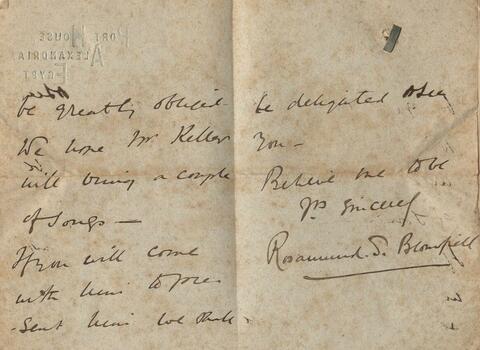 PORT HOUSE
ALEXANDRIA
EGYPT
be greatly obliged.
We hope Mr Keller
will bring a couple
of songs —
If you will come
with him to pre
-sent him we shall
be delighted to see
you —
Believe me to be
Yrs sincerely
Rosamund S. Blomfield